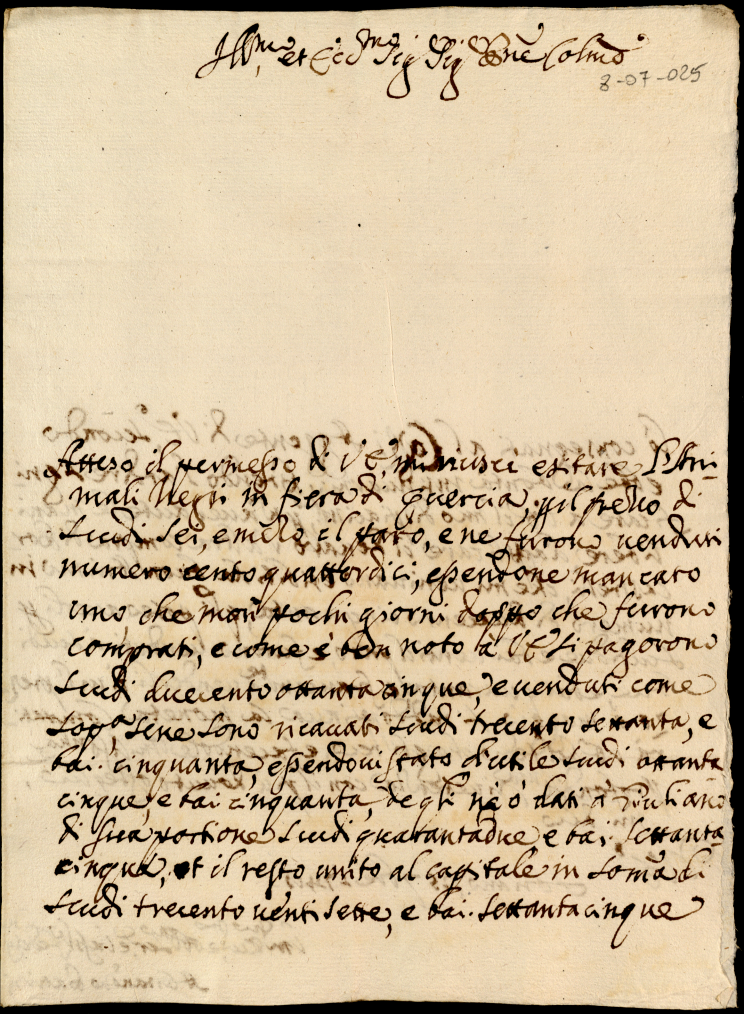 Ill.mo et Ecc.mo Sig Sig P.rone Colmo
8-07-025
Atteso il permesso di V E, mi riuscì esitare l'Ani-
mali Negri in fiera di quercia, p il prezzo di
Scudi sei, e mezo il paro, e ne furono venduti
numero cento quattordici, essendone mancato
uno che morì pochi giorni doppo che furono
comprati, e come è ben noto à V E si pagorono
Scudi ducento ottantacinque, e venduti come
sop.a, se ne sono ricavati Scudi trecento settanta, e
bai: cinquanta, essendovi stato d'utile Scudi ottanta
cinque, e bai cinquanta, degli ne ò dati à Giuliano
di sua portione Scudi quarantadue, e bai: settanta
cinque, et il resto unito al capitale in somã di
Scudi trecento venti sette, e bai. settantacinque